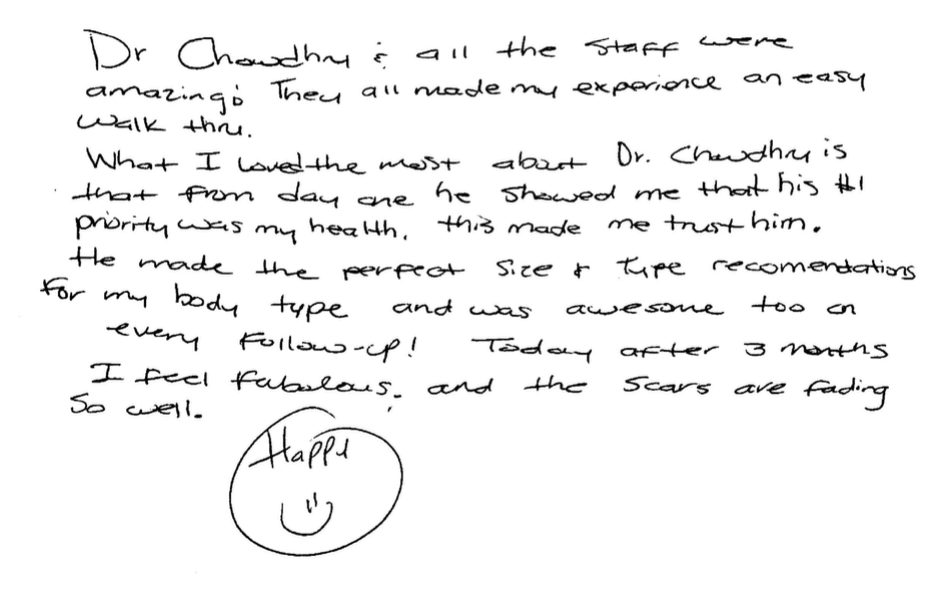 Dr Chowdhry & all the staff were
amazing! They all made my experience an easy
walk thru.
What I loved the most about Dr. Chowdhry is
that from day one he showed me that his #1
priority was my health, this made me trust him.
He made the perfect size & type recomendations
for my body type and was awesome too on
every follow-up! Today after 3 months
I feel fabulous, and the scars are fading
so well.
Happy